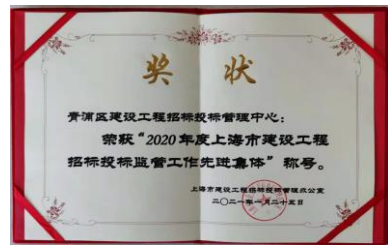 奖状
青浦区建设工程招标投标管理中心：
荣获“2020年度上海市建设工程
招标投标监管工作先进集体”称号。
上海市建设工程招标投标管理办公室
二〇二一年一月二十五日